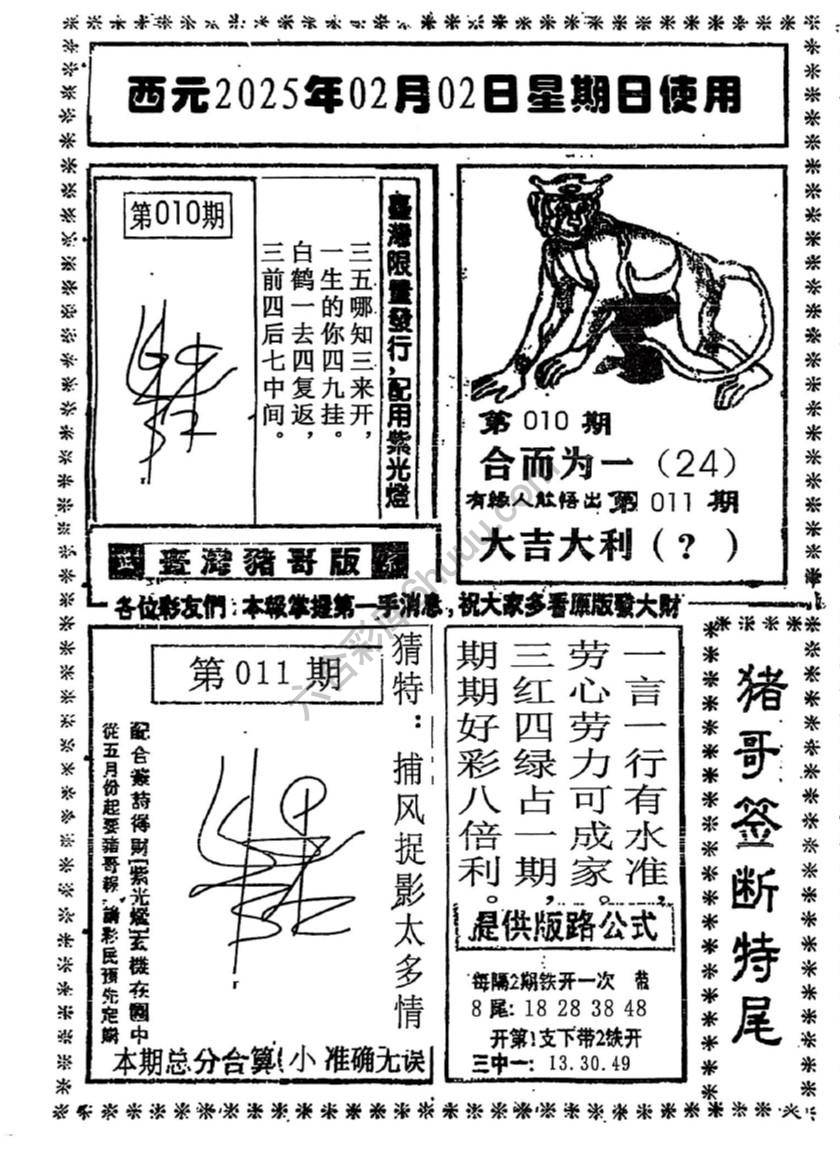 西元2025年02月02日星期日使用
第010期
臺灣限量發行,配用紫光燈
三五哪知三来开,
一生的你四九挂。
白鹤一去四复返,
三前四后七中间。
第010期
合而为一(24)
有緣人能悟出第011期
大吉大利(?)
臺灣豬哥版
各位彩友們:本報掌握第一手消息,祝大家多看原版發大財
第011期
猜特:捕风捉影太多情
配合簽詩得財[紫光燈]玄機在圖中
從五月份起要豬哥報 請彩民預先定購
本期总分合算(小 准确无误
一言一行有水准,
劳心劳力可成家。
三红四绿占一期,
期期好彩八倍利。
提供版路公式
每隔2期铁开一次 带
8尾:18 28 38 48
开第1支下带2铁开
三中一:13.30.49
猪哥签断特尾
六合彩库6huuu.com